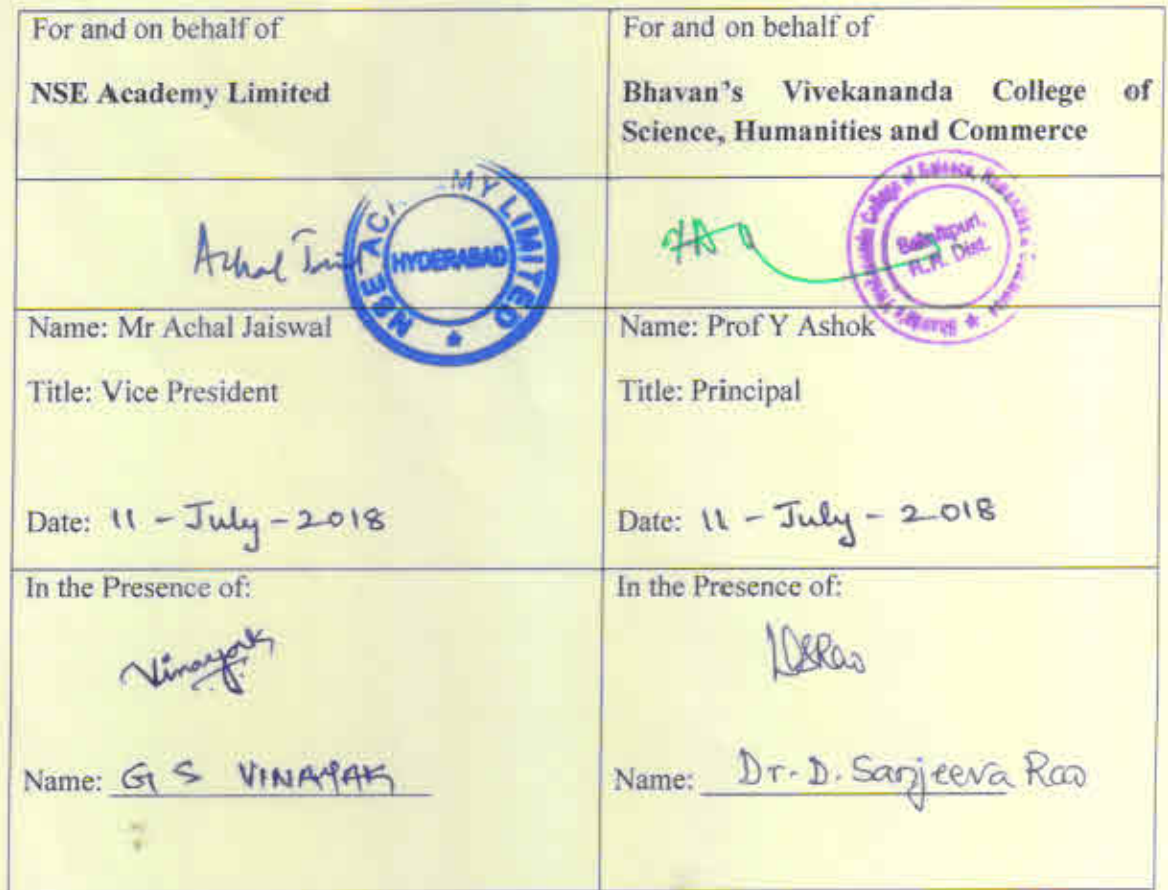 For and on behalf of
NSE Academy Limited
For and on behalf of
Bhavan's Vivekananda College of
Science, Humanities and Commerce
Achal
NSE AC MY LIMITED
HYDERABAD
College of Science,
R.R. Dist.
Name: Mr Achal Jaiswal
Title: Vice President
Date: 11 - July - 2018
Name: Prof Y Ashok
Title: Principal
Date: 11 - July - 2018
In the Presence of:
Vinayak
Name: G S VINAYAK
In the Presence of:
DSRao
Name: Dr. D. Sanjeeva Rao